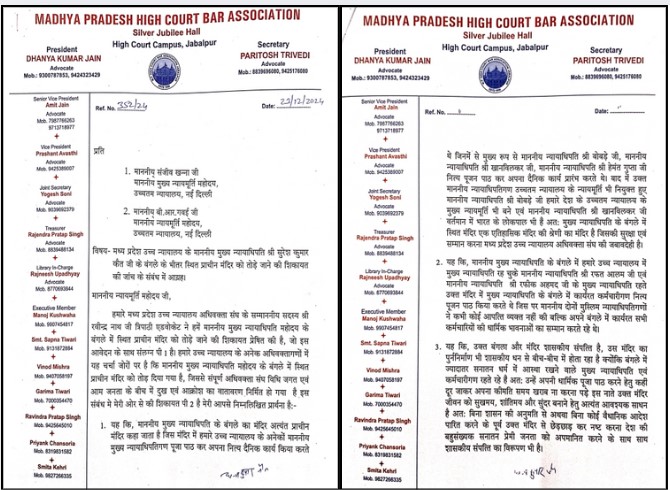 MADHYA PRADESH HIGH COURT BAR ASSOCIATION
Silver Jubilee Hall
High Court Campus, Jabalpur
President
DHANYA KUMAR JAIN
Advocate
Mob.: 9300787853, 9424323429
Secretary
PARITOSH TRIVEDI
Advocate
Mob.: 8839696080, 9425176080
Senior Vice President
Amit Jain
Advocate
Mob. 7987766263
9713718977
Vice President
Prashant Avasthi
Advocate
Mob. 9425389007
Joint Secretary
Yogesh Soni
Advocate
Mob. 9039692379
Treasurer
Rajendra Pratap Singh
Advocate
Mob. 8839488134
Library In-Charge
Rajneesh Upadhyay
Advocate
Mob. 8770693844
Executive Member
Manoj Kushwaha
Mob. 9907454817
Smt. Sapna Tiwari
Mob. 9131872884
Vinod Mishra
Mob. 9407058197
Garima Tiwari
Mob. 7000354470
Ravindra Pratap Singh
Mob. 9425645010
Priyank Chansoria
Mob. 8319831582
Smita Kehri
Mob. 9827268335
Ref. No. 352/24
Date: 23/12/2024
प्रति
1. माननीय संजीव खन्ना जी
माननीय मुख्य न्यायमूर्ति महोदय,
उच्चतम न्यायालय, नई दिल्ली
2. माननीय बी.आर.गवई जी
माननीय न्यायमूर्ति महोदय,
उच्चतम न्यायालय, नई दिल्ली
विषय- मध्य प्रदेश उच्च न्यायालय के माननीय मुख्य न्यायाधिपति श्री सुरेश कुमार
कैत जी के बंगले के भीतर स्थित प्राचीन मंदिर को तोड़े जाने की शिकायत
की जांच के संबंध में आग्रह।
माननीय न्यायमूर्ति महोदय जी,
हमारे मध्य प्रदेश उच्च न्यायालय अधिवक्ता संघ के सम्माननीय सदस्य श्री
रवीन्द्र नाथ जी त्रिपाठी एडवोकेट ने हमें माननीय मुख्य न्यायाधिपति महोदय के
बंगले में स्थित प्राचीन मंदिर को तोड़े जाने की शिकायत प्रेषित की है, जो इस
आवेदन के साथ संलग्न पी 1 है। हमारे उच्च न्यायालय के अनेक अधिवक्तागणों में
यह चर्चा जोरों पर है कि माननीय मुख्य न्यायाधिपति महोदय के बंगले में स्थित
प्राचीन मंदिर को तोड़ दिया गया है, जिससे संपूर्ण अधिवक्ता संघ विधि जगत एवं
आम जनता के बीच में दुख एवं आक्रोश का वातावरण निर्मित हो गया है। इस
संबंध मे मेरी ओर से की शिकायत पी 2 है मेरी आपसे निम्नलिखित प्रार्थना:-
1. यह कि, माननीय मुख्य न्यायाधिपति के बंगले का मंदिर अत्यंत प्राचीन
मंदिर कहा जाता है जिस मंदिर में हमारे उच्च न्यायालय के अनेकों माननीय
मुख्य न्यायाधिपतिगण पूजा पाठ कर अपना दैनिक कार्य प्रारंभ किया करते
MADHYA PRADESH HIGH COURT BAR ASSOCIATION
Silver Jubilee Hall
High Court Campus, Jabalpur
President
DHANYA KUMAR JAIN
Advocate
Mob.: 9300787853, 9424323429
Secretary
PARITOSH TRIVEDI
Advocate
Mob.: 8839696080, 9425176080
Senior Vice President
Amit Jain
Advocate
Mob. 7987766263
9713718977
Vice President
Prashant Avasthi
Advocate
Mob. 9425389007
Joint Secretary
Yogesh Soni
Advocate
Mob. 9039692379
Treasurer
Rajendra Pratap Singh
Advocate
Mob. 8839488134
Library In-Charge
Rajneesh Upadhyay
Advocate
Mob. 8770693844
Executive Member
Manoj Kushwaha
Mob. 9907454817
Smt. Sapna Tiwari
Mob. 9131872884
Vinod Mishra
Mob. 9407058197
Garima Tiwari
Mob. 7000354470
Ravindra Pratap Singh
Mob. 9425645010
Priyank Chansoria
Mob. 8319831582
Smita Kehri
Mob. 9827268335
Ref. No.
Date:
थे जिनमें से मुख्य रुप से माननीय न्यायाधिपति श्री बोबड़े जी, माननीय
न्यायाधिपति श्री खानविलकर जी, माननीय न्यायाधिपति श्री हेमंत गुप्ता जी
नित्य पूजन पाठ कर अपना दैनिक कार्य प्रारंभ करते थे बाद में उक्त
माननीय न्यायाधिपतिगण उच्चतम न्यायालय के न्यायमूर्ति भी नियुक्त हुए
माननीय श्री बोबड़े जी हमारे देश के उच्चतम न्यायालय के माननीय मुख्य
न्यायमूर्ति भी बने एवं माननीय न्यायाधिपति श्री खानविलकर जी
वर्तमान में भारत के लोकपाल भी है अत: मुख्य न्यायाधिपति के बंगले में
स्थित मंदिर एक एतिहासिक मंदिर की श्रेणी का मंदिर है जिसकी सुरक्षा एवं
सम्मान करना मध्य प्रदेश उच्च न्यायालय अधिवक्ता संघ की जवाबदेही है।
2. यह कि, माननीय मुख्य न्यायाधिपति के बंगले में हमारे उच्च न्यायालय में
मुख्य न्यायाधिपति रह चुके माननीय न्यायाधिपति श्री रफत आलम जी एवं
माननीय न्यायाधिपति श्री रफीक अहमद जी के मुख्य न्यायाधिपति रहते
उक्त मंदिर में मुख्य न्यायाधिपति के बंगले में कार्यरत कर्मचारीगण नित्य
पूजन पाठ किया करते थे जिस पर माननीय दोनों मुस्लिम न्यायाधिपतिगणों
ने कभी कोई आपत्ति व्यक्त नहीं की बल्कि अपने बंगले में कार्यरत सभी
कर्मचारियों की धार्मिक भावनाओं का सम्मान करते रहे थे।
3. यह कि, उक्त बंगला और मंदिर शासकीय संपत्ति है, उस मंदिर का
पुर्ननिर्माण भी शासकीय धन से बीच-बीच में होता रहा है क्योंकि बंगले में
ज्यादातर सनातन धर्म में आस्था रखने वाले मुख्य न्यायाधिपति एवं
कर्मचारीगण रहते रहे है अत: उन्हें अपनी धार्मिक पूजा पाठ करने हेतु कहीं
दूर जाकर अपना कीमती समय खराब ना करना पड़े इस नाते उक्त मंदिर
जीवन की सुखमय, शांतिमय और सुंदर बनाने हेतु अत्यंत आवश्यक साधन
है अत: बिना शासन की अनुमति से अथवा बिना कोई वैधानिक आदेश
पारित करने के पूर्व उक्त मंदिर से छेड़छाड़ कर नष्ट करना देश की
बहुसंख्यक सनातन प्रेमी जनता को अपमानित करने के साथ साथ
शासकीय संपत्ति का विरुपण भी है।